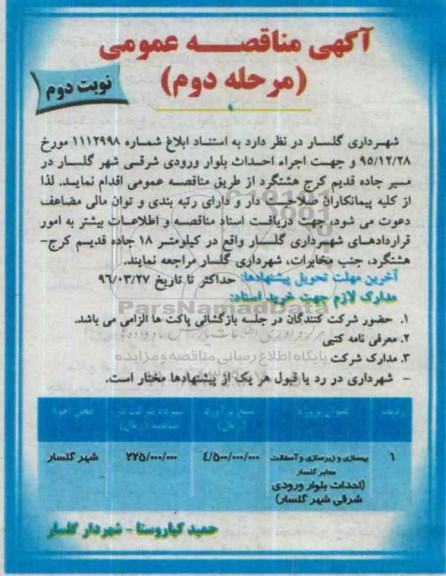 آگهی مناقصه عمومی
(مرحله دوم)
نوبت دوم
شهرداری گلسار در نظر دارد به استناد ابلاغ شماره ۱۱۱۲۹۹۸ مورخ
۹۵/۱۲/۲۸ و جهت اجراء احداث بلوار ورودی شرقی شهر گلسار در
مسیر جاده قدیم کرج هشتگرد از طریق مناقصه عمومی اقدام نمایند. لذا
از کلیه پیمانکاران صلاحیت دار و دارای رتبه بندی و توان مالی مضاعف
دعوت می شود، جهت دریافت اسناد مناقصه و اطلاعات بیشتر به امور
قراردادهای شهرداری گلسار واقع در کیلومتر ۱۸ جاده قدیم کرج-
هشتگرد، جنب مخابرات، شهرداری گلسار مراجعه نمایند.
آخرین مهلت تحویل پیشنهادها: حداکثر تا تاریخ ۹۶/۰۳/۲۷
مدارک لازم جهت خرید اسناد:
۱. حضور شرکت کنندگان در جلسه بازگشائی پاکت ها الزامی می باشد.
ParsNamadData
۲. معرفی نامه کتبی
پایگاه اطلاع رسانی مناقصه و مزایده
۳. مدارک شرکت
- شهرداری در رد یا قبول هر یک از پیشنهادها مختار است.
ردیف عنوان پروژه مبلغ برآورد (ریال) سپرده شرکت در مناقصه (ریال) محل اجرا
۱ بهسازی و زیرسازی و آسفالت معابر گلسار (احداث بلوار ورودی شرقی شهر گلسار) ۴/۵۰۰/۰۰۰/۰۰۰ ۲۲۵/۰۰۰/۰۰۰ شهر گلسار
حمید کیاروستا - شهردار گلسار